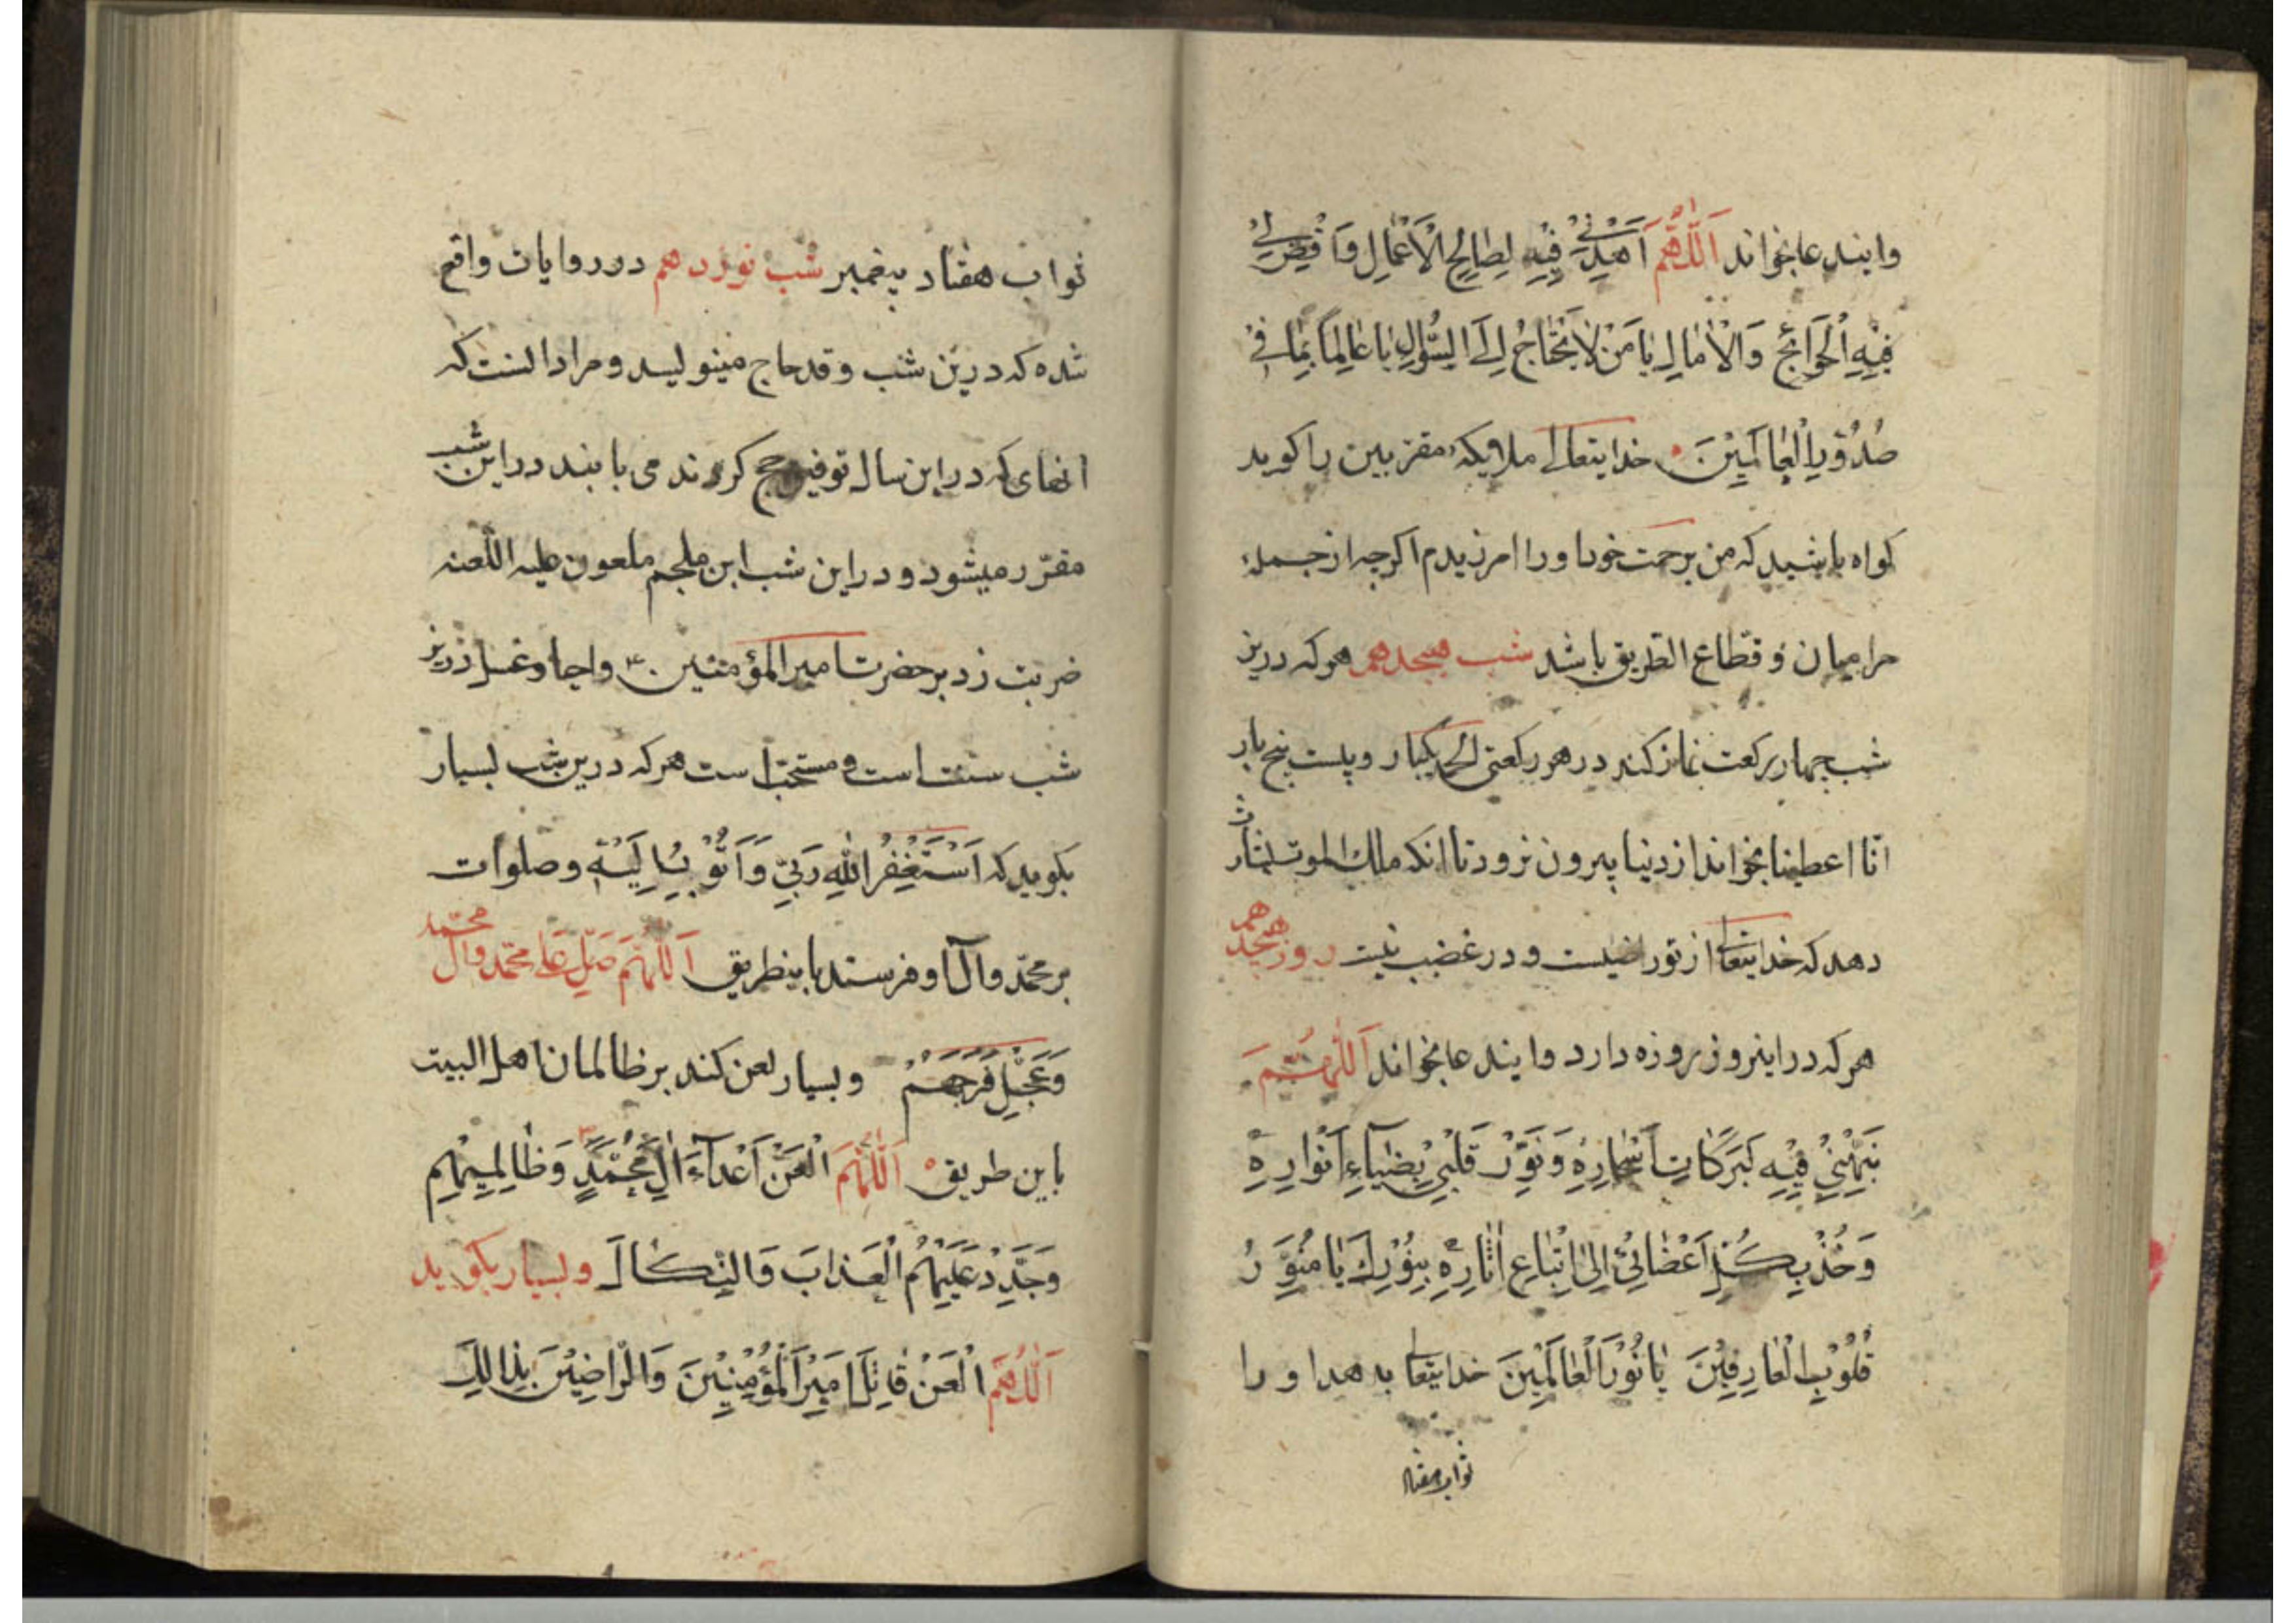 وایندعا بخواند اَللّٰهُمَّ اَهْدِنِيْ فِيْهِ لِصٰالِحِ الْاَعْمٰالِ وَاقْضِ لِيْ
فِيْهِ الْحَوٰائِجَ وَالْاٰمٰالِ يٰا مَنْ لٰا يَحْتٰاجُ اِلَى السُّؤٰالِ يٰا عٰالِمًا بِمٰا فِيْ
صُدُوْرِ الْعٰالَمِيْنَ خدایتعالی ملایکه مقربین را کوید
کواه باشید که من برحمت خود او را امرزیدم اکرچه از جمله
حرامیان و قطاع الطریق باشد شب هیجدهم هرکه درین
شب چهار رکعت نماز کند در هر رکعتی الحمد یکبار و بیست پنج بار
انّا اعطینا بخواند از دنیا بیرون نرود تا انکه ملك الموت بشارت
دهد که خدایتعالی از تو راضیست و در غضب نیت روز هیجدهم
هرکه در اینروز روزه دارد وایندعا بخواند اَللّٰهُمَّ
نَبِّهْنِيْ فِيْهِ لِبَرَكٰاتِ اَسْحٰارِهِ وَنَوِّرْ قَلْبِيْ بِضِيٰاءِ اَنْوٰارِهِ
وَخُذْ بِكُلِّ اَعْضٰائِيْ اِلَى اتِّبٰاعِ اٰثٰارِهِ بِنُوْرِكَ يٰا مُنَوِّرَ
قُلُوْبِ الْعٰارِفِيْنَ يٰا نُوْرَ الْعٰالَمِيْنَ خدایتعالی بدهد او را
ثواب هفتاد
ثواب هفتاد پیغمبر شب نوزدهم در روایات واقع
شده که درین شب وفد حاج مینویسد و مراد انست که
انهای که در این سال توفیق حج کردند می یابند در این شب
مقرّر میشود و در این شب ابن ملجم ملعون علیه اللّعنه
ضربت زد بر حضرت امیرالمؤمنین واحیا و غسل درین
شب سنت است و مستحب است هرکه درین شب بسیار
بکوید که اَسْتَغْفِرُ اللّٰهَ رَبِّيْ وَاَتُوْبُ اِلَيْهِ وصلوات
بر محمّد وآل او فرستد باینطریق اَللّٰهُمَّ صَلِّ عَلٰى محمّد وآل محمّد
وَعَجِّلْ فَرَجَهُمْ وبسیار لعن کند بر ظالمان اهل البیت
باین طریق اَللّٰهُمَّ الْعَنْ اَعْدٰاءَ اٰلِ مُحَمَّدٍ وَظٰالِمِيْهِمْ
وَجَدِّدْ عَلَيْهِمُ الْعَذٰابَ وَالنَّكٰالَ وبسیار بکوید
اَللّٰهُمَّ الْعَنْ قٰاتِلَ اَمِيْرِ الْمُؤْمِنِيْنَ وَالرّٰاضِيْنَ بِذٰالِكَ